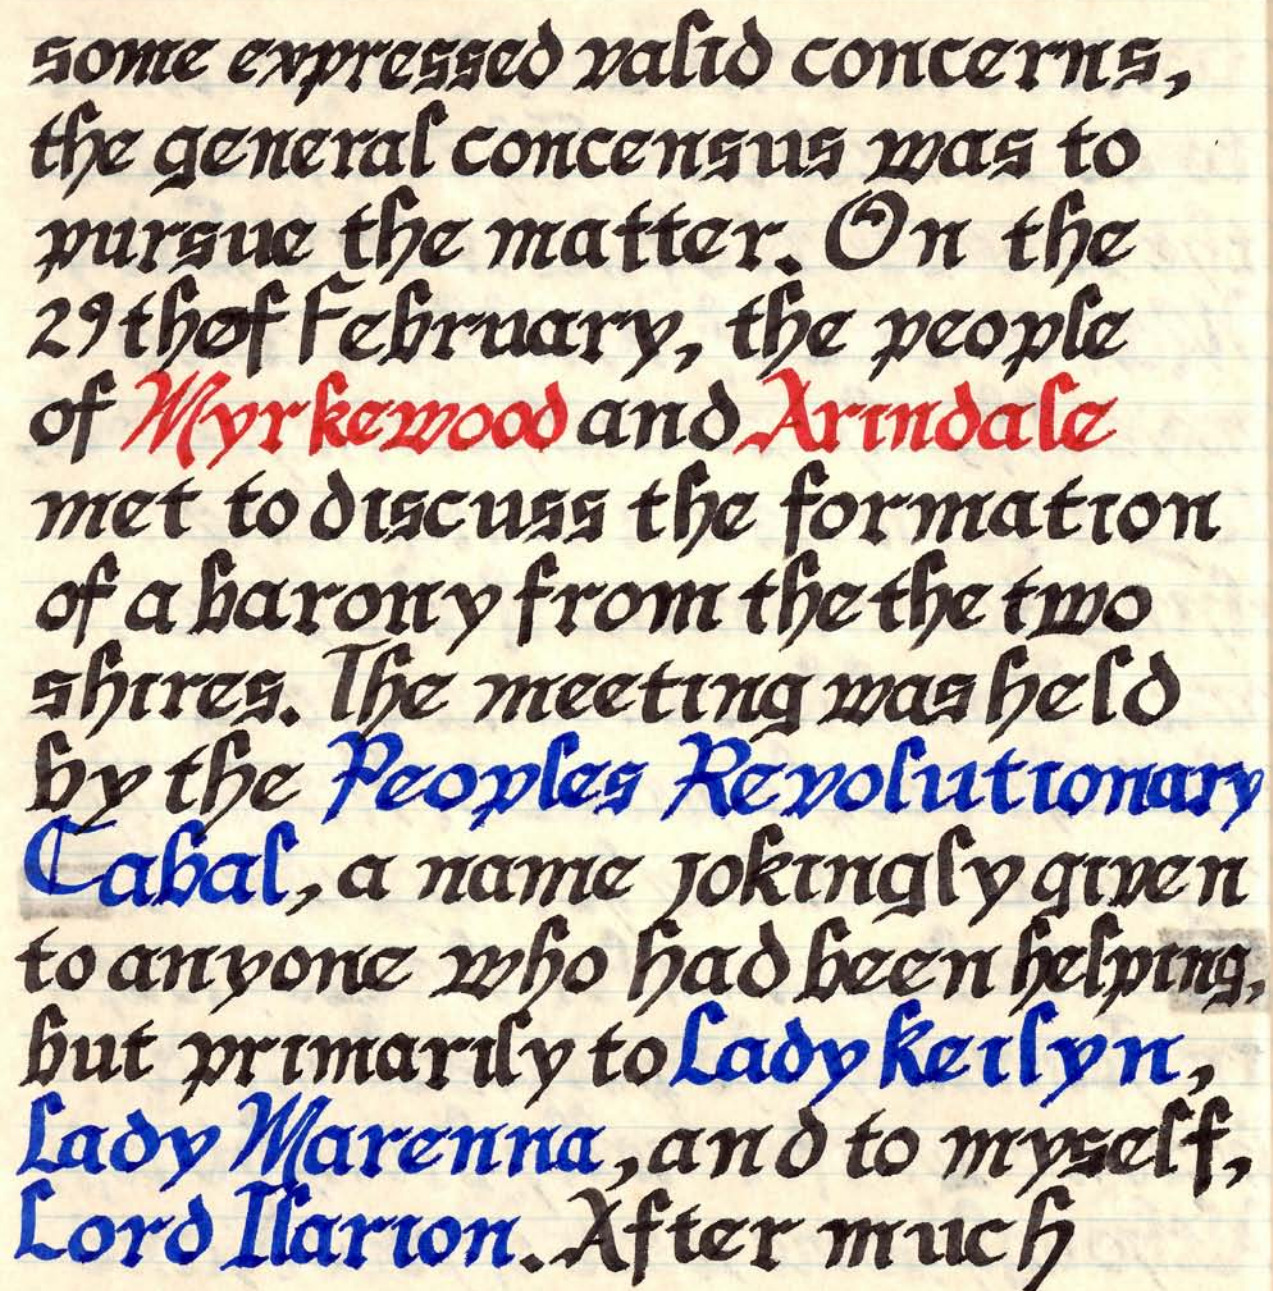 some expressed valid concerns,
the general concensus was to
pursue the matter. On the
29th of February, the people
of Myrkewood and Arindale
met to discuss the formation
of a barony from the the two
shires. The meeting was held
by the Peoples Revolutionary
Cabal, a name jokingly given
to anyone who had been helping,
but primarily to Lady Keilyn,
Lady Marenna, and to myself,
Lord Ilarion. After much